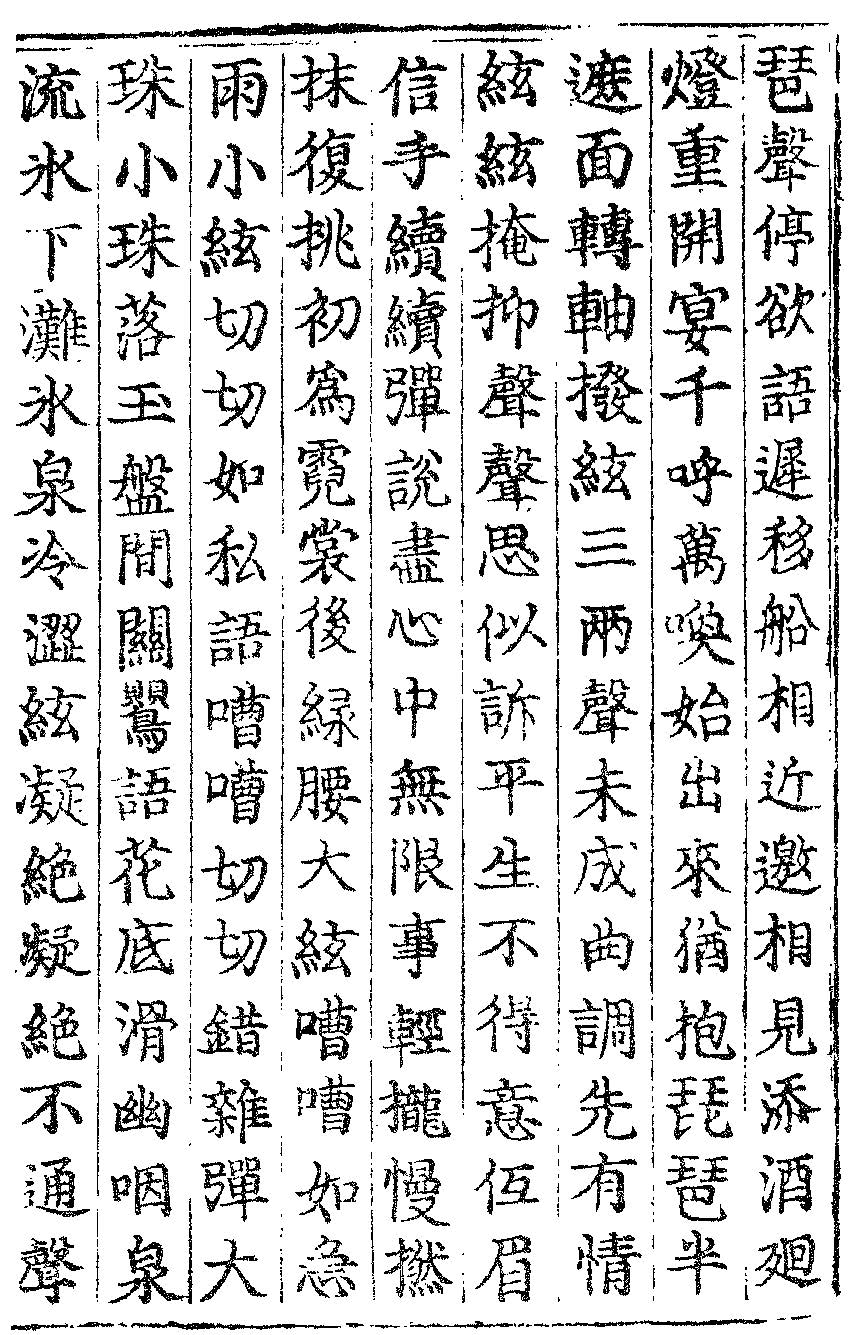 琶聲停欲語遲移船相近邀相見添酒廻
燈重開宴千呼萬喚始出來猶抱琵琶半
遮面轉軸撥絃三兩聲未成曲調先有情
絃絃掩抑聲聲思似訴平生不得意低眉
信手續續彈說盡心中無限事輕攏慢撚
抹復挑初爲霓裳後緑腰大絃嘈嘈如急
雨小絃切切如私語嘈嘈切切錯雜彈大
珠小珠落玉盤間關鸎語花底滑幽咽泉
流氷下灘氷泉冷澀絃凝絶凝絶不通聲